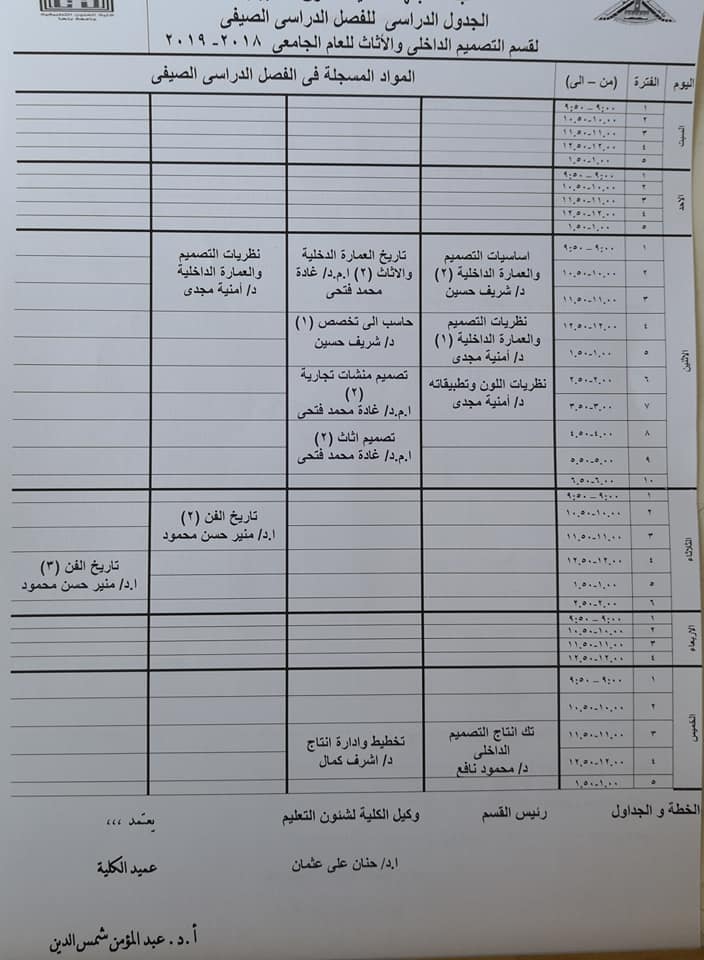 الجدول الدراسى للفصل الدراسى الصيفى
لقسم التصميم الداخلى والأثاث للعام الجامعى ٢٠١٨-٢٠١٩
اليوم الفترة (من - الى) المواد المسجلة فى الفصل الدراسى الصيفى
السبت
١ ٩:٠٠ – ٩:٥٠
٢ ١٠.٠٠-١٠.٥٠
٣ ١١.٠٠-١١.٥٠
٤ ١٢.٠٠-١٢.٥٠
٥ ١.٠٠-١.٥٠
الاحد
١ ٩:٠٠ – ٩:٥٠
٢ ١٠.٠٠-١٠.٥٠
٣ ١١.٠٠-١١.٥٠
٤ ١٢.٠٠-١٢.٥٠
٥ ١.٠٠-١.٥٠
الاثنين
١ ٩:٠٠ – ٩:٥٠
٢ ١٠.٠٠-١٠.٥٠
٣ ١١.٠٠-١١.٥٠
٤ ١٢.٠٠-١٢.٥٠
٥ ١.٠٠-١.٥٠
٦ ٢.٠٠-٢.٥٠
٧ ٣.٠٠-٣.٥٠
٨ ٤.٠٠-٤.٥٠
٩ ٥.٠٠-٥.٥٠
١٠ ٦.٠٠-٦.٥٠
اساسيات التصميم
والعمارة الداخلية (٢)
د/ شريف حسين
نظريات التصميم
والعمارة الداخلية (١)
د/ أمنية مجدى
نظريات اللون وتطبيقاته
د/ أمنية مجدى
تاريخ العمارة الدخلية
والاثاث (٢) ا.م.د/ غادة
محمد فتحى
حاسب الى تخصص (١)
د/ شريف حسين
تصميم منشات تجارية
(٢)
ا.م.د/ غادة محمد فتحى
تصميم اثاث (٢)
ا.م.د/ غادة محمد فتحى
نظريات التصميم
والعمارة الداخلية
د/ أمنية مجدى
الثلاثاء
١ ٩:٠٠ – ٩:٥٠
٢ ١٠.٠٠-١٠.٥٠
٣ ١١.٠٠-١١.٥٠
٤ ١٢.٠٠-١٢.٥٠
٥ ١.٠٠-١.٥٠
٦ ٢.٠٠-٢.٥٠
تاريخ الفن (٢)
ا.د/ منير حسن محمود
تاريخ الفن (٣)
ا.د/ منير حسن محمود
الاربعاء
١ ٩:٠٠ – ٩:٥٠
٢ ١٠.٠٠-١٠.٥٠
٣ ١١.٠٠-١١.٥٠
٤ ١٢.٠٠-١٢.٥٠
الخميس
١ ٩:٠٠ – ٩:٥٠
٢ ١٠.٠٠-١٠.٥٠
٣ ١١.٠٠-١١.٥٠
٤ ١٢.٠٠-١٢.٥٠
٥ ١.٠٠-١.٥٠
تك انتاج التصميم
الداخلى
د/ محمود نافع
تخطيط وادارة انتاج
د/ اشرف كمال
الخطة و الجداول رئيس القسم وكيل الكلية لشئون التعليم يعتمد ،،،
ا.د/ حنان على عثمان عميد الكلية
أ . د . عبد المؤمن شمس الدين